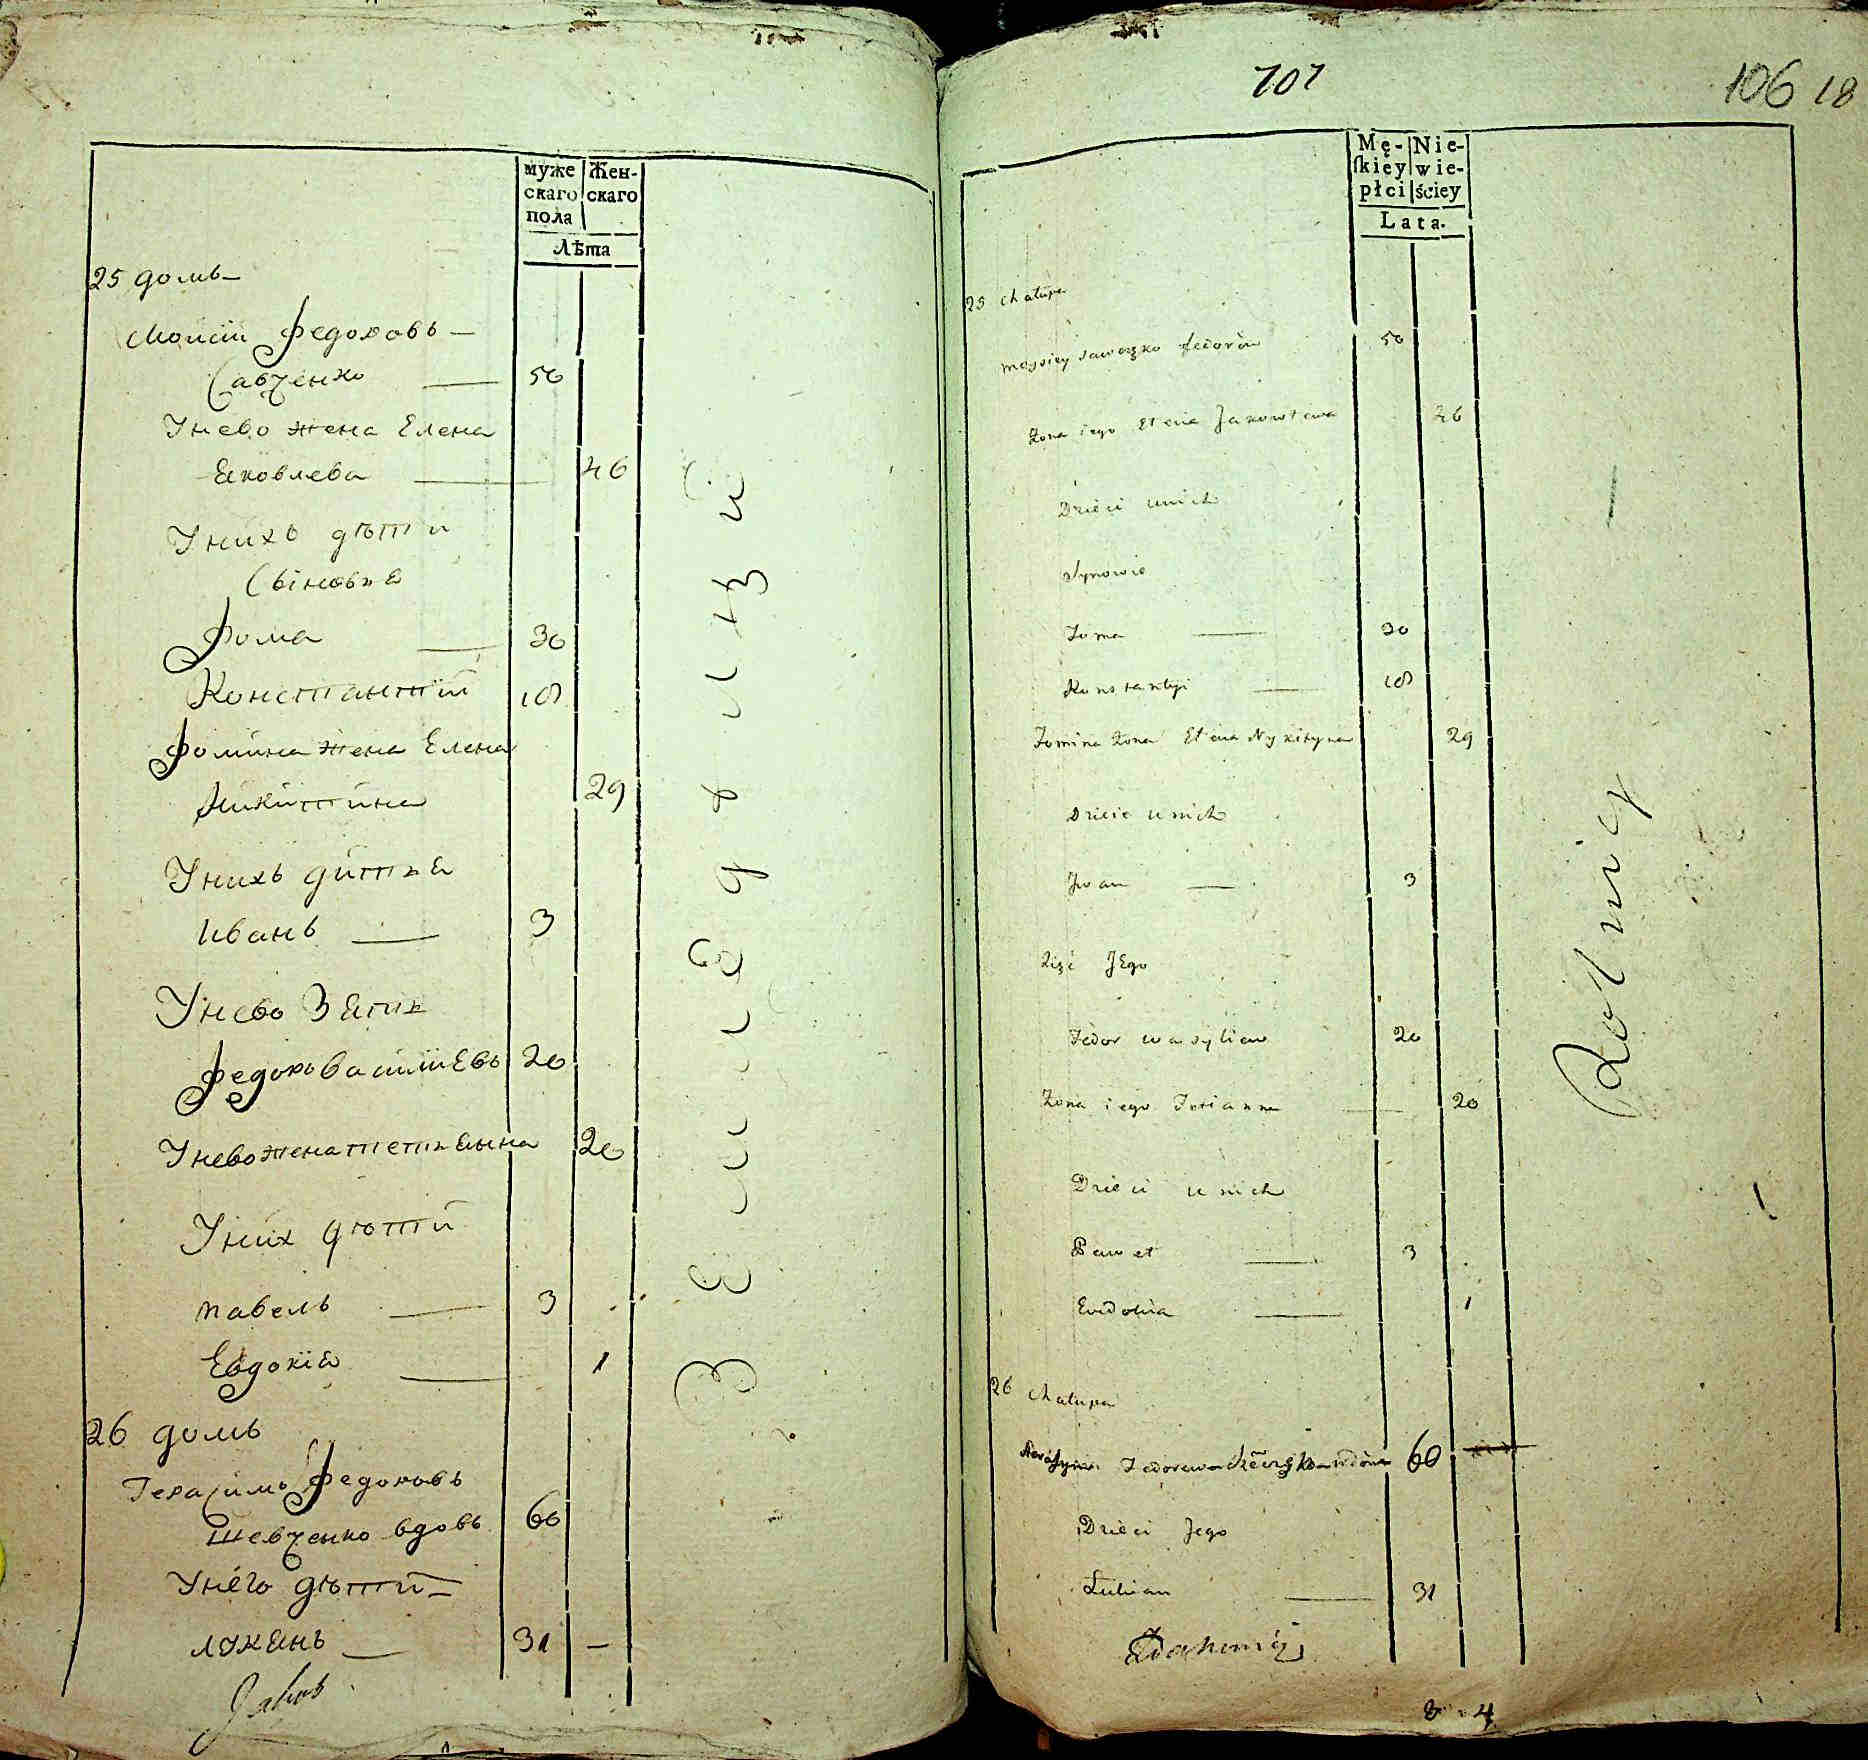 муже
скаго
пола
Жен-
скаго
Лѣта
25 домъ
Моисій Федоровъ
Савченко 50
У нево жена Елена
Яковлева 46
У нихъ дѣти
Сыновья
Фома 30
Константий 18
Фомина жена Елена
Никитина 29
У нихъ дитя
Иванъ 3
У нево зять
Федоръ Василиевъ 20
У нево жена Тетянна 20
У них дѣти
Павелъ 3
Евдокія 1
26 домъ
Герасимъ Федоровъ
Шевченко вдовъ 60
У него дѣти
Лукянъ 31 —
Земледелцы
101
106 18
Mę-
skiey
płci
Nie-
wie-
ściey
Lata.
25 Chałupa
Moysiey Sawczko Fedorów 50
Żona iego Elena Jakowlewa 46
Dzieci u nich
Synowie
Foma 30
Konstantyi 18
Fomina Żona Elena Nykityna 29
Dziecie u nich
Jwan 3
Zięć Jego
Fedor Wasyliew 20
Żona iego Tetianna 20
Dzieci u nich
Paweł 3
Ewdokia 1
26 Chałupa
60
Dzieci Jego
Łukian 31
Rolnicy
8 4